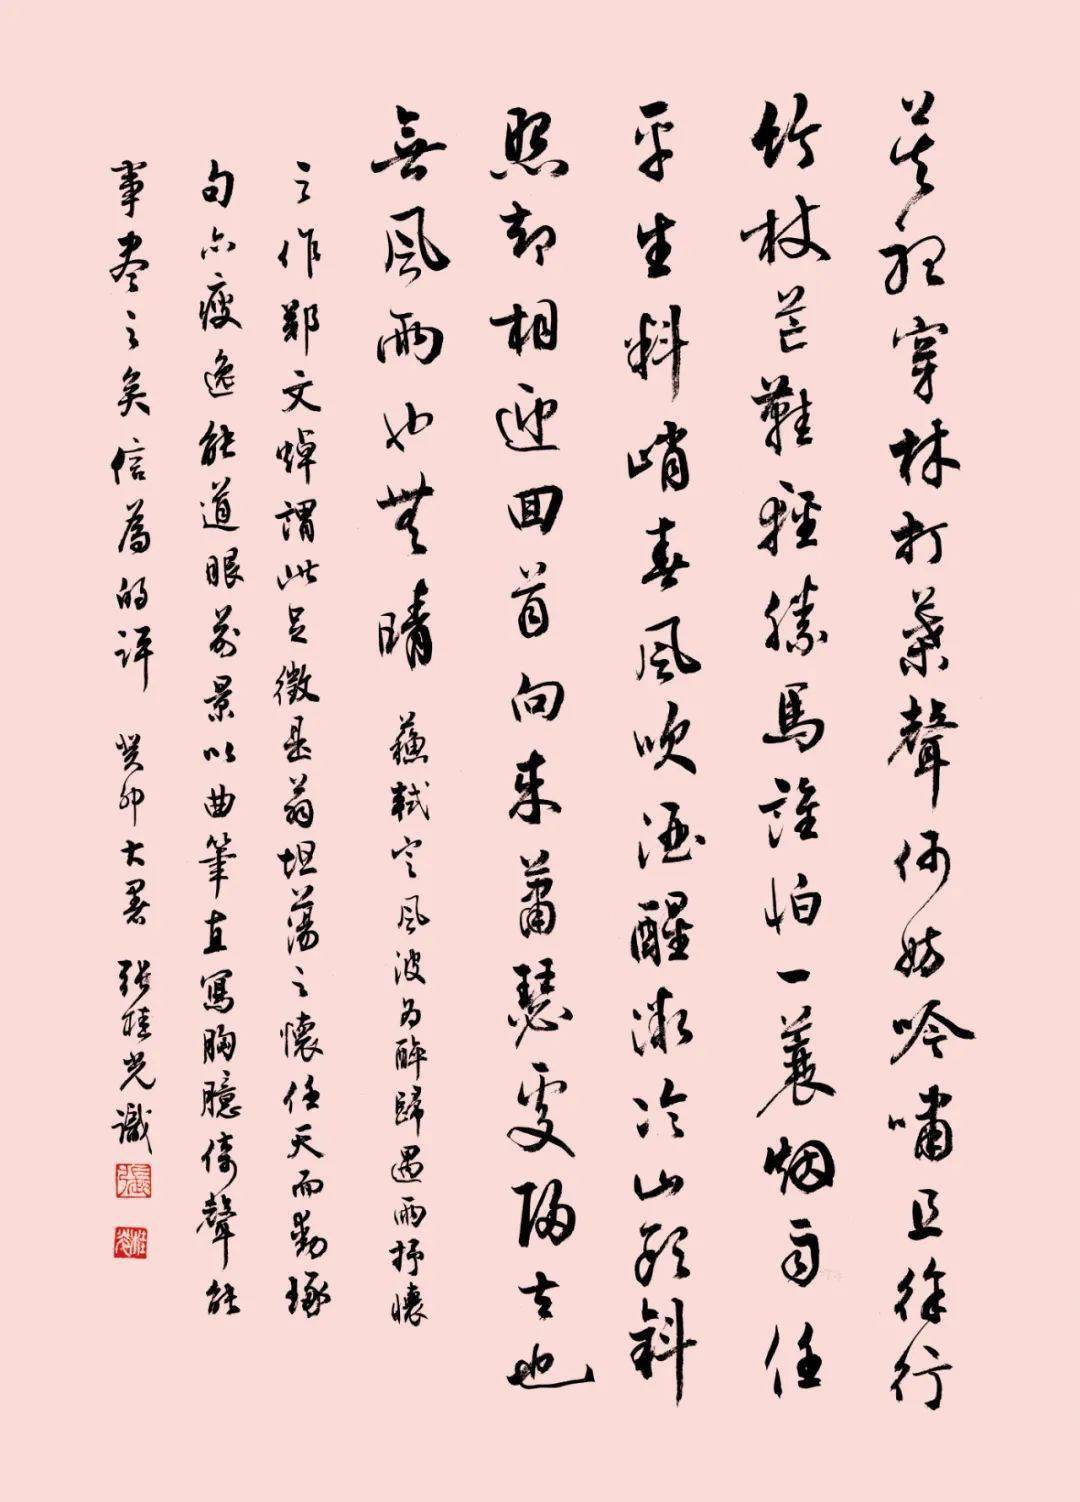 莫聽穿林打葉聲何妨吟嘯且徐行
竹杖芒鞋輕勝馬誰怕一蓑烟雨任
平生料峭春風吹酒醒微冷山頭斜
照却相迎回首向來蕭瑟處歸去也
無風雨也無晴 蘇軾定風波為醉歸遇雨抒懷
之作鄭文焯謂此足徵是翁坦蕩之懷任天而動琢
句亦瘦逸能道眼前景以曲筆直寫胸臆倚聲能
事盡之矣信為的評 癸卯大暑 張桂光識
張
桂光